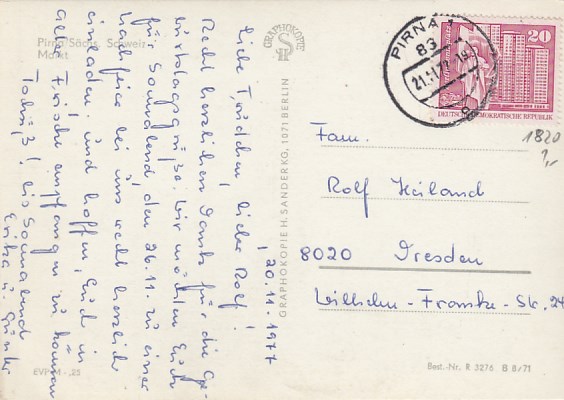 Pirna/Sächs. Schweiz
Markt
20.11.1977
Liebe Friedchen, lieber Rolf!
Recht herzlichen Dank für die Ge-
burtstagsgrüße. Wir möchten Euch
für Sonnabend, den 26.11. zu einer
Nachfeier bei uns recht herzlich
einladen und hoffen, Euch in
alter Frische empfangen zu können
Tschüß! bis Sonnabend
Erika u. Günter
EVP M -,25
GRAPHOKOPIE
GRAPHOKOPIE H. SANDER KG, 1071 BERLIN
PIRNA 1
83
21.11.77
20
DEUTSCHE DEMOKRATISCHE REPUBLIK
1820
Fam.
Rolf Heiland
8020 Dresden
Wilhelm-Franke-Str. 24
Best.-Nr. R 3276 B 8/71